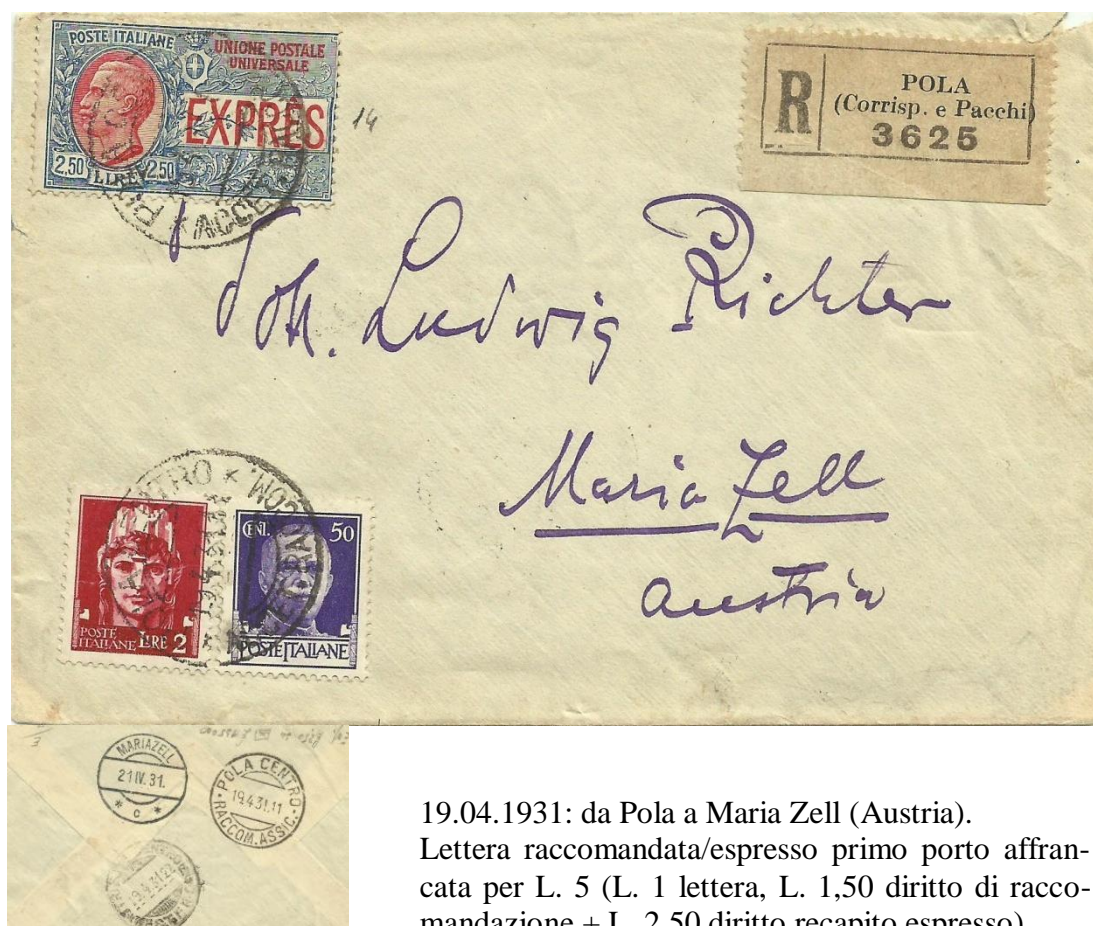 POSTE ITALIANE
UNIONE POSTALE
UNIVERSALE
EXPRÈS
2,50 LIRE 2,50
14
R
POLA
(Corrisp. e Pacchi)
3625
Joh. Ludwig Richter
Maria Zell
Austria
POSTE
ITALIANE LIRE 2
CENT. 50
POSTE ITALIANE
MARIAZELL
21 IV. 31.
* C *
POLA CENTRO
19.4.31.11
RACCOM. ASSIC.
19.04.1931: da Pola a Maria Zell (Austria).
Lettera raccomandata/espresso primo porto affran-
cata per L. 5 (L. 1 lettera, L. 1,50 diritto di racco-
mandazione + L. 2,50 diritto recapito espresso)